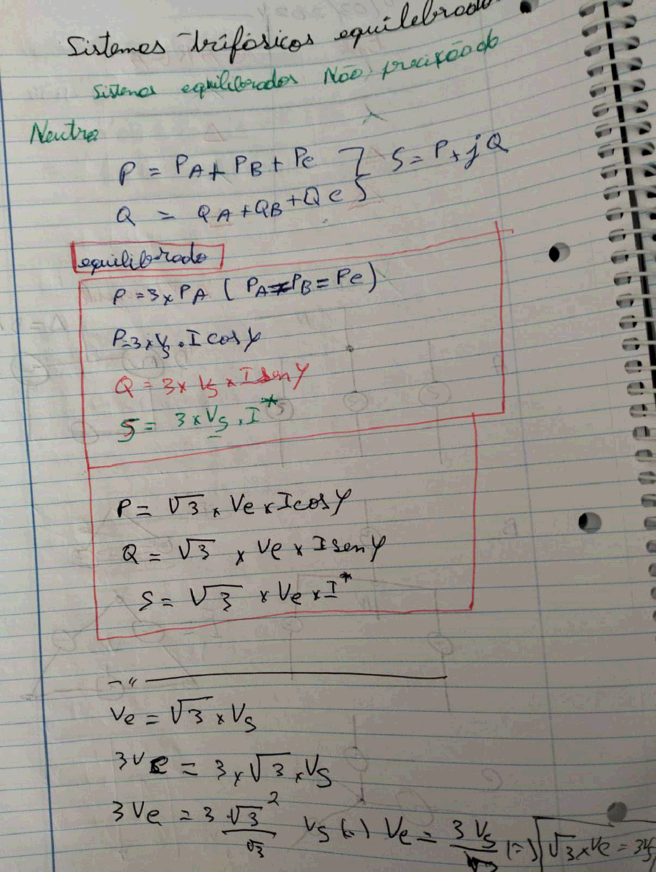 Sistemas trifásicos equilibrado
Sistemas equilibrados Não precisão do
Neutro
P = PA + PB + Pc ] S = P + jQ
Q = QA + QB + Qc
equilibrado
P = 3 x PA ( PA = PB = Pc )
P = 3 x Vs . I cos φ
Q = 3 x Vs x I sen φ
S = 3 x Vs . I*
P = √3 x Vc x I cos φ
Q = √3 x Vc x I sen φ
S = √3 x Vc x I*
Vc = √3 x Vs
3Vc = 3 x √3 x Vs
3Vc = 3 √3² / √3 Vs (=) Vc = 3 Vs / √3 (=) √3 x Vc = 3Vs